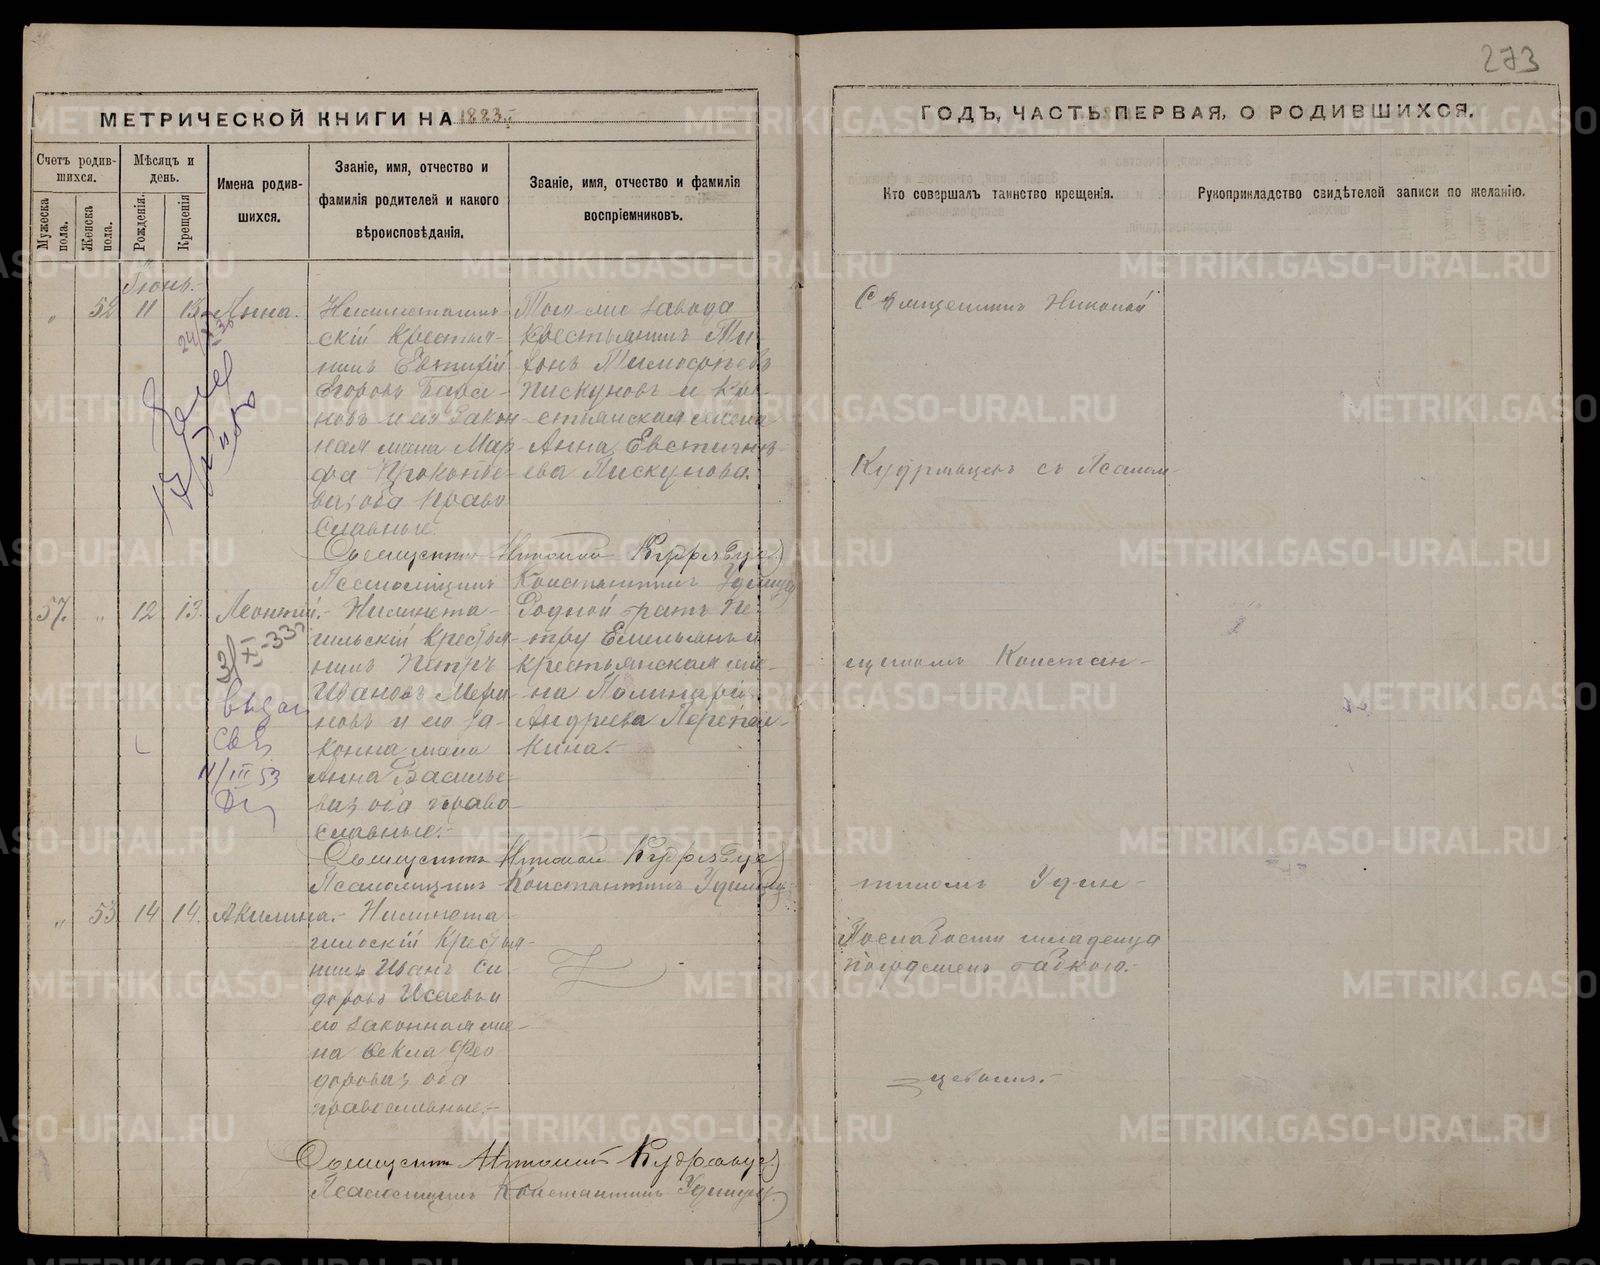 273
МЕТРИЧЕСКОЙ КНИГИ НА 1883 г.
ГОДЪ, ЧАСТЬ ПЕРВАЯ, О РОДИВШИХСЯ.
Счетъ родившихся.
Мужеска пола.
Женска пола.
Мѣсяцъ и день.
Рожденія.
Крещенія
Имена родившихся.
Званіе, имя, отчество и фамилія родителей и какого вѣроисповѣданія.
Званіе, имя, отчество и фамилія воспріемниковъ.
Кто совершалъ таинство крещенія.
Рукоприкладство свидѣтелей записи по желанію.
Іюнь.
„ 52 11 13 Анна.
скій крестья-
нинъ Евтихій
Егоровъ
новъ и его закон-
ная жена Мар-
фа Прокопье-
ва, оба право
славные
Того же завода
крестьянинъ Ти-
хонъ Тимофеевъ
Пискуновъ и кре-
стьянская жена
Анна Евстигне-
ева Пискунова.
Священникъ Николай
Кудрявцевъ съ Псалом-
Священникъ Николай Кудрявцев
Псаломщикъ Константинъ Удинцев
57. „ 12 13. Леонтій.
Нижнета-
гильскій крестья-
нинъ Петръ
Ивановъ Мери
новъ и его за-
конна жена
Анна Василье-
ва, оба право
славные.
Родной братъ Пе-
тру Емельянъ и
крестьянская же-
на Полинарія
Андреева Перепел-
кина.
щикомъ Констан-
31/XI-33
выдан
свед
11/III 53
Священникъ Николай Кудрявцев
Псаломщикъ Константинъ Удинцев
тиномъ Удин-
„ 53 14 14. Акилина.
Нижнета
гильскій Крестья-
нинъ Иванъ Си-
доровъ Исаевъ и
его законная же-
на Ѳекла Фео
дорова, оба
православные.
По слабости младенца
погружен бабкою.
цевымъ.
Священникъ Николай Кудрявцев
Псаломщикъ Константинъ Удинцев
METRIKI.GASO-URAL.RU